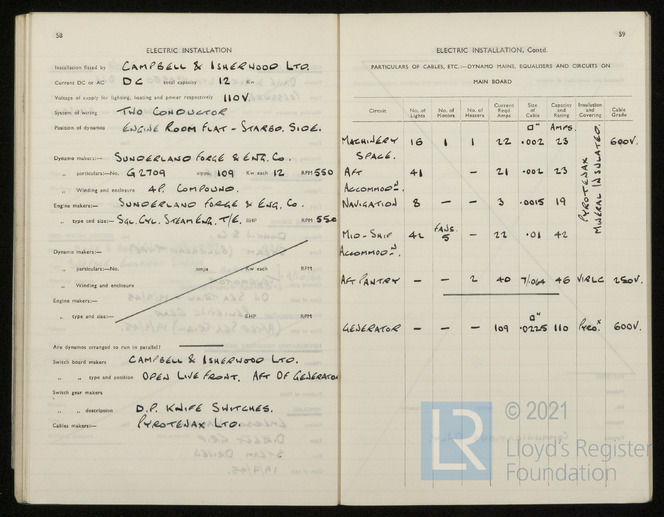 58
ELECTRIC INSTALLATION
Installation fitted by CAMPBELL & ISHERWOOD LTD.
Current DC or AC DC total capacity 12 Kw
Voltage of supply for lighting, heating and power respectively 110V.
System of wiring TWO CONDUCTOR
Position of dynamos ENGINE ROOM FLAT - STARBD. SIDE.
Dynamo makers:— SUNDERLAND FORGE & ENG. CO.
„ particulars:—No. G2709 amps. 109 Kw each 12 RPM 550
„ Winding and enclosure 4P. COMPOUND.
Engine makers:— SUNDERLAND FORGE & ENG. CO.
„ type and size:— SGL. CYL. STEAM ENG. T/E. BHP RPM 550
Dynamo makers:—
„ particulars:—No. amps Kw each RPM
„ Winding and enclosure
Engine makers:—
„ type and size:— BHP RPM
Are dynamos arranged to run in parallel?
Switch board makers CAMPBELL & ISHERWOOD LTD.
„ „ type and position OPEN LIVE FRONT. AFT OF GENERATOR
Switch gear makers
„ „ description D.P. KNIFE SWITCHES.
Cables makers:— PYROTENAX LTD.
59
ELECTRIC INSTALLATION, Contd.
PARTICULARS OF CABLES, ETC.:—DYNAMO MAINS, EQUALISERS AND CIRCUITS ON
MAIN BOARD
Circuit No. of Lights No. of Motors No. of Heaters Current Reqd. Amps Size of Cable Capacity and Rating Insulation and Covering Cable Grade
□" AMPS.
MACHINERY SPACE. 16 1 1 22 .002 23 PYROTENAX MINERAL INSULATED. 600V.
AFT ACCOMMODN. 41 — — 21 .002 23
NAVIGATION 8 — — 3 .0015 19
MID-SHIP ACCOMMODN. 42 FANS. 5 — 22 .01 42
AFT PANTRY — — 2 40 7/.064 46 VIRLC 250V.
□"
GENERATOR — — — 109 .0225 110 PYROX. 600V.
LR © 2021
Lloyd's Register
Foundation